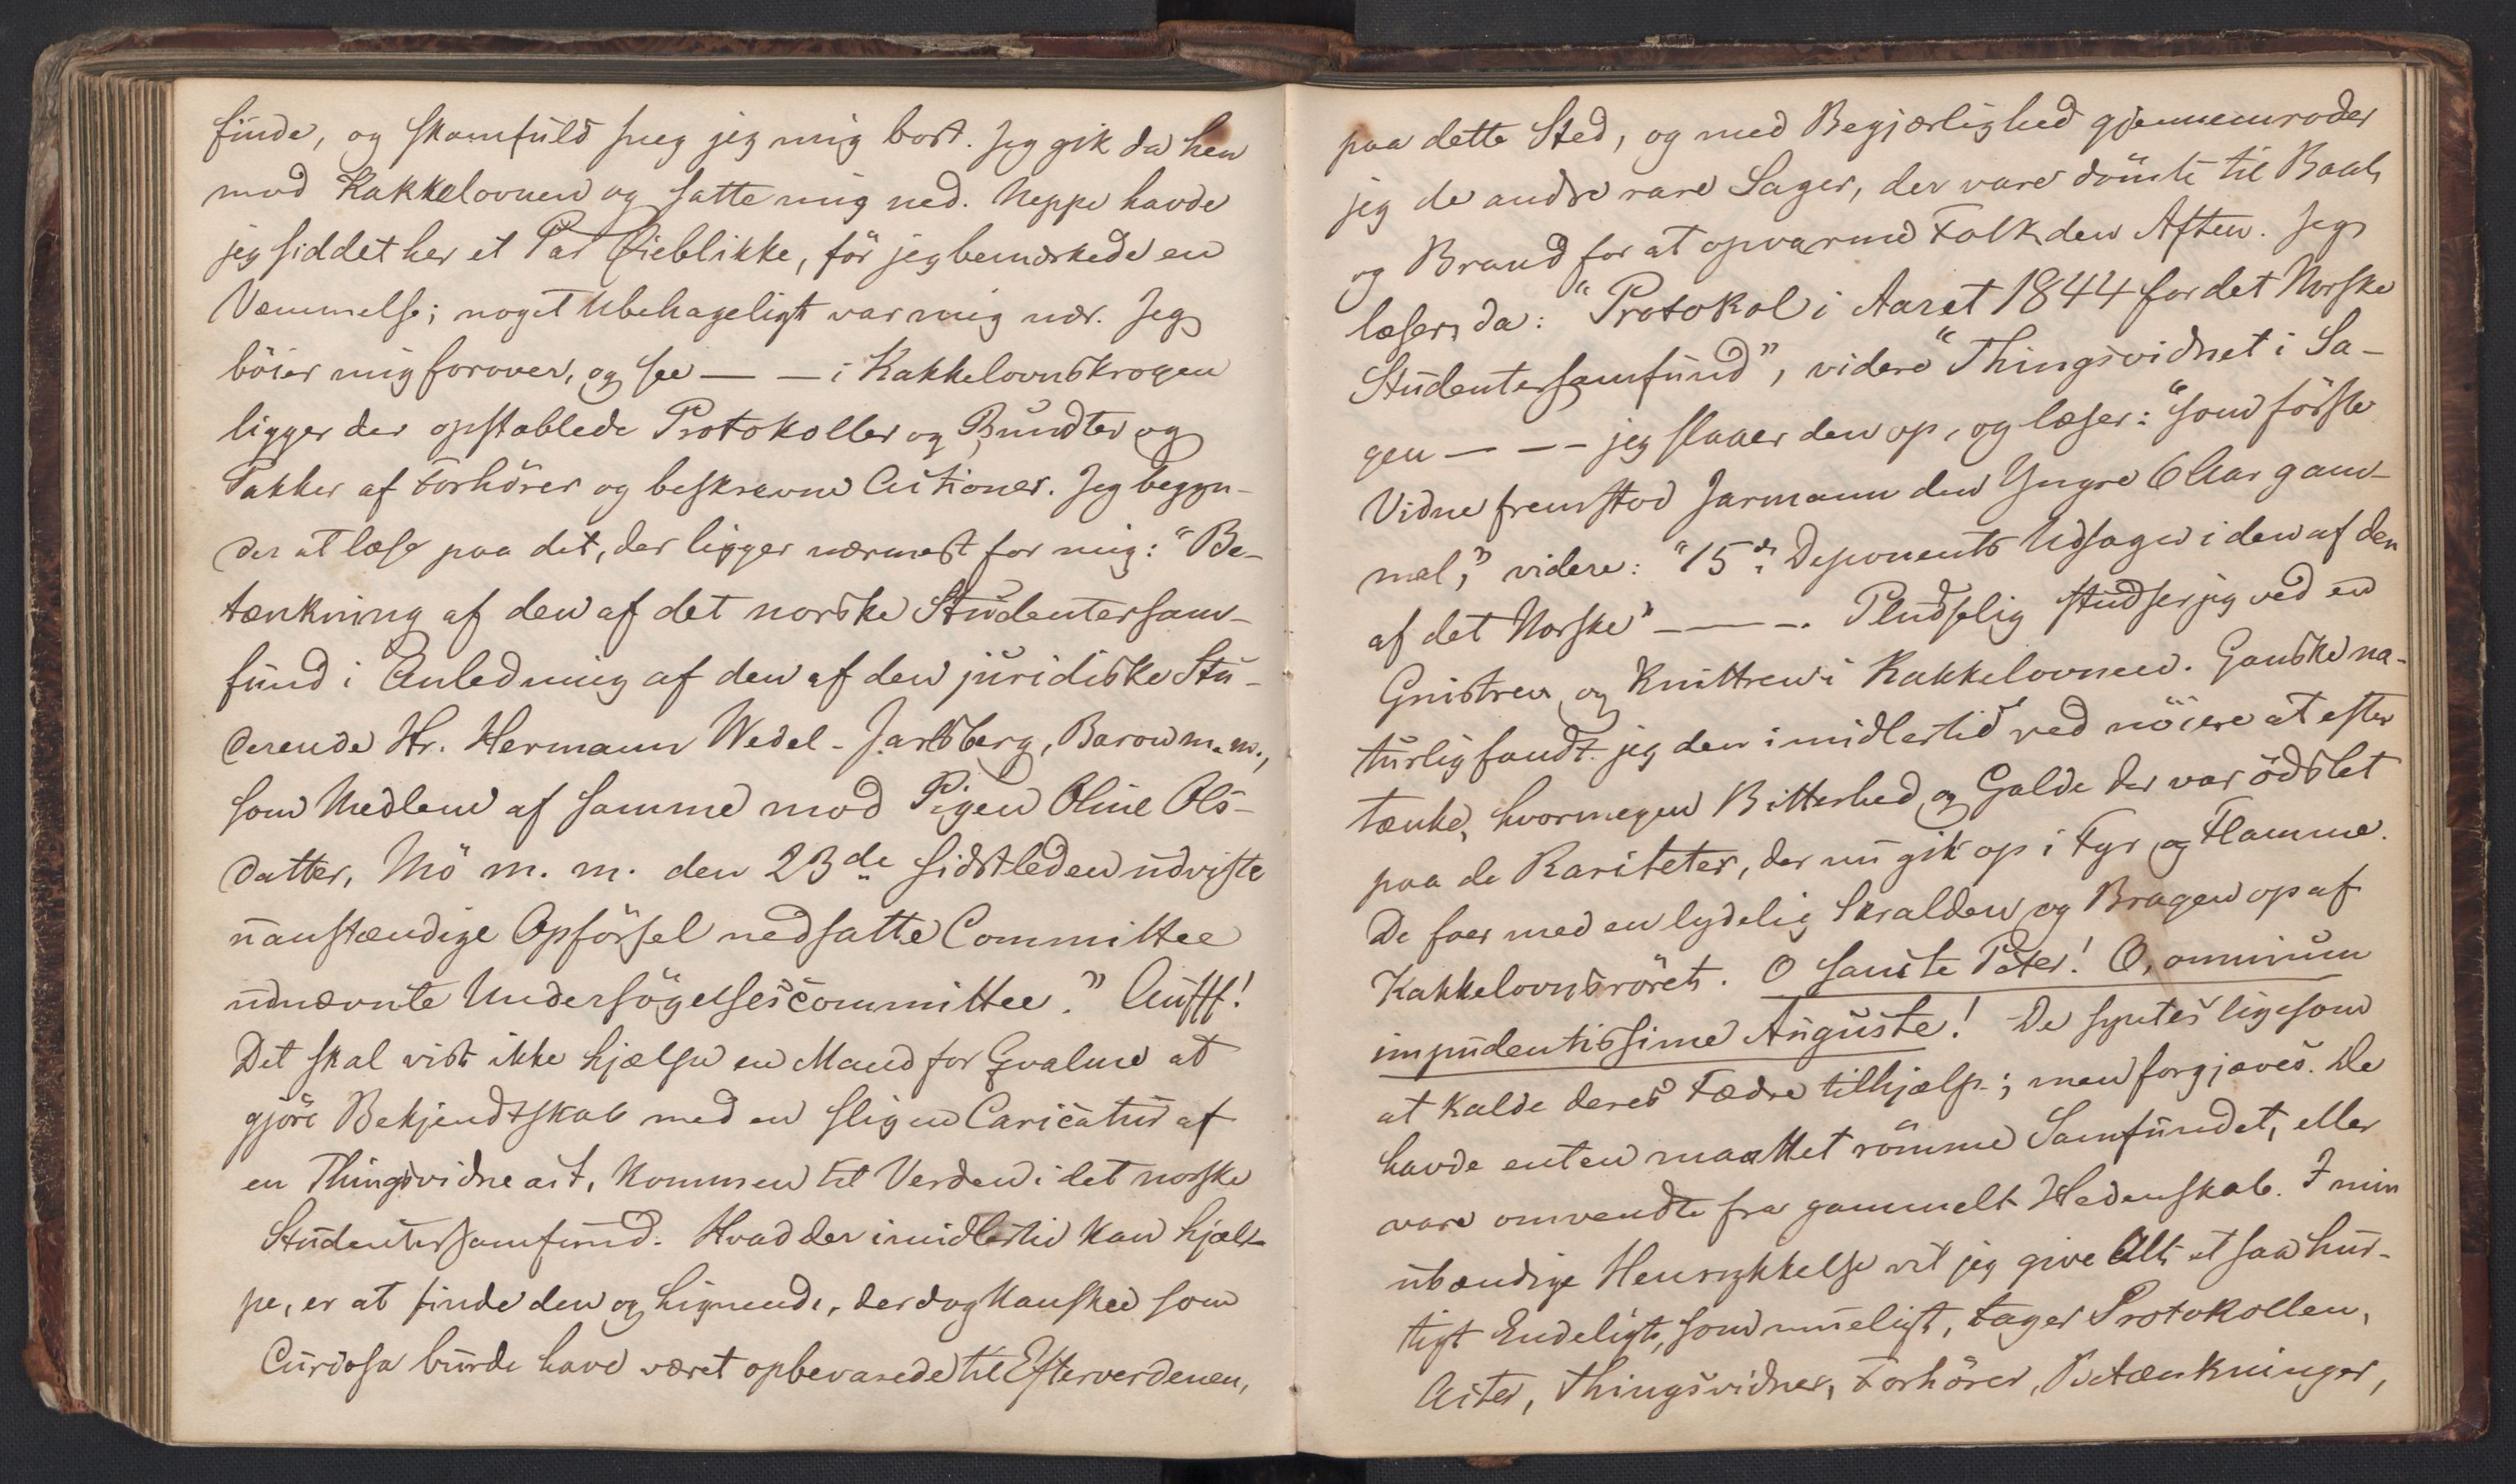 finde, og skamfuld sneg jeg mig bort. Jeg gik da hen
mod Kakkelovnen og satte mig ned. Neppe havde
jeg siddet her et Par Øieblikke, før jeg bemærkede en
Væmmelse; noget Ubehageligt var mig nær. Jeg
böier mig forover, og see — — i Kakkelovnskrogen
ligger der opstablede Protokoller og Bundter og
Pakker af Forhörer og beskrevne Actioner. Jeg begyn-
der at læse paa det, der ligger nærmest for mig: "Be-
tænkning af den af det norske Studentersam-
fund i Anledning af den af den juridiske Stu-
derende Hr. Hermann Wedel-Jarlsberg, Baron m.m.,
som Medlem af samme mod Pigen Oline Ols-
datter, Mö m. m. den 23de sidstleden udviste
uanstændige Opförsel nedsatte Committee
udnævnte Undersögelsescommittee." Aufff!
Det skal vist ikke hjælpe en Mand for Qvalme at
gjöre Bekjendtskab med en sligen Caricatur af
en Thingsvidneact, kommen til Verden i det norske
Studentersamfund. Hvad der imidlertid kan hjæl-
pe, er at finde den og lignende, der dog kanskee som
Curiosa burde have været opbevarede til Efterverdenen,
paa dette Sted, og med Begjærlighed gjennemroder
jeg de andre rare Sager, der vare dömte til Baal
og Brand for at opvarme Folk den Aften. Jeg
læser da: "Protokol i Aaret 1844 for det Norske
Studentersamfund", videre "Thingsvidnet i Sa-
gen — — — jeg slaaer den op, og læser: "som förste
Vidne fremstod Jarmann den Yngre 6 Aar gam-
mel," videre: "15de Deponents Udsagn i den af den
af det Norske" — — —. Pludselig studser jeg ved en
Gnistren og Knittren i Kakkelovnen. Ganske na-
turlig fandt jeg den imidlertid ved nöiere at efter
tænke, hvormegen Bitterhed og Galde der var ödslet
paa de Rariteter, der nu gik op i Fyr og Flamme.
De foer med en lydelig Skralden og Bragen op af
Kakkelovnsröret. O sancte Peter! O, omnium
impudentissime Auguste! De syntes ligesom
at kalde deres Fædre tilhjælp; men forgjæves. De
havde enten maattet römme Samfundet, eller
vare omvendte fra gammelt Hedenskab. I min
ubændige Henrykkelse vil jeg give Alt et saa hur-
tigt Endeligt, som mueligt, tager Protokollen,
Acter, Thingsvidner, Forhörer, Betænkninger,